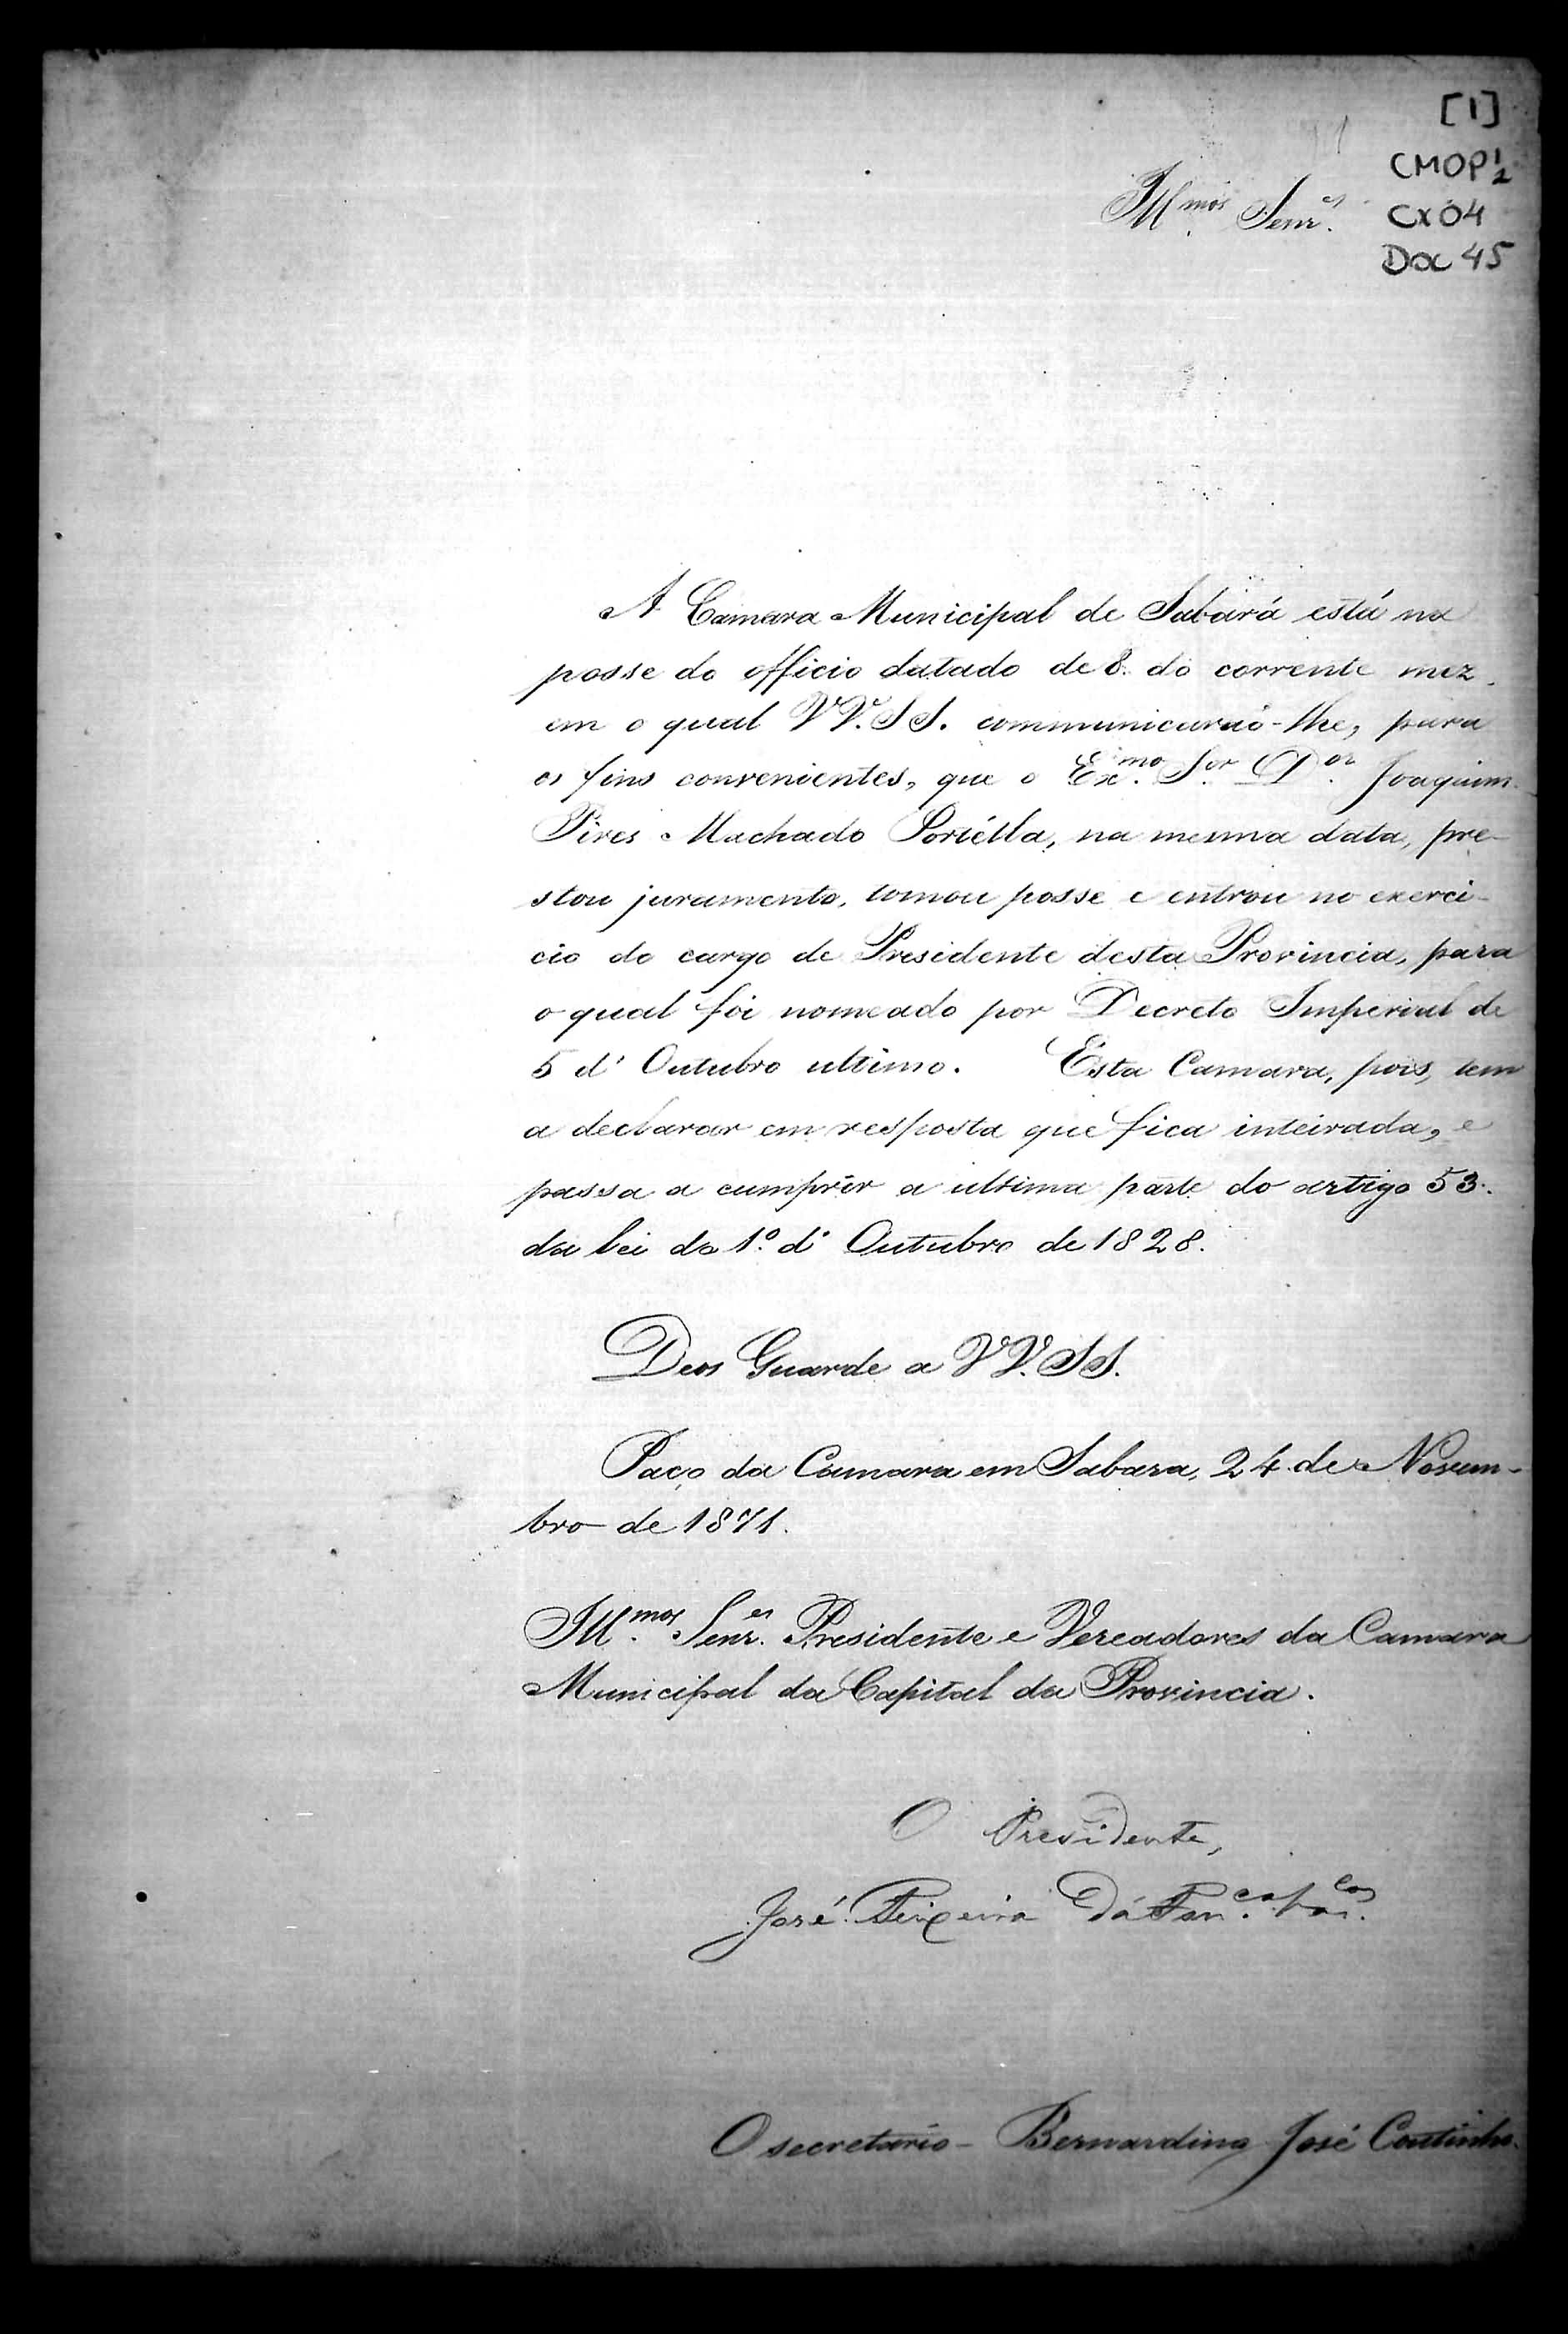 [1]
CMOP 1/2
CX 04
Doc 45
Ill.mos Senr.es
A Camara Municipal de Sabará está na
posse do officio datado de 8. do corrente mez,
em o qual VV.SS. communicaraõ-lhe, para
os fins convenientes, que o Ex.mo S.or D.or Joaquim
Pires Machado Portélla, na mesma data, pre-
stou juramento, tomou posse e entrou no exerci-
cio do cargo de Presidente desta Provincia, para
o qual foi nomeado por Decreto Imperial de
5 d' Outubro ultimo. Esta Camara, pois, tem
a declarar em resposta que fica inteirada, e
passa a cumprir a ultima parte do artigo 53.
da lei do 1.º d' Outubro de 1828.
Deos Guarde a VV.SS.
Paço da Camara em Sabara, 24 de Novem-
bro de 1871.
Ill.mos Senr.es Presidente e Vereadores da Camara
Municipal da Capital da Provincia.
O Presidente,
José Teixeira da Fon.ca
O secretario - Bernardino José Coutinho.